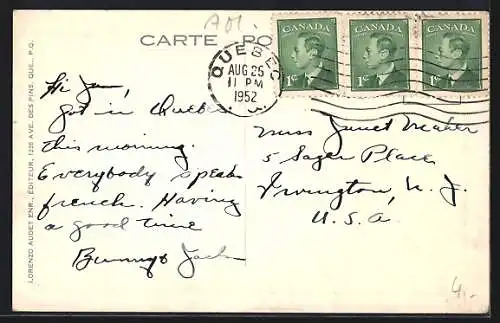 AOl.
CARTE PO
QUEBEC
AUG 25
11 PM
1952
CANADA
1¢
CANADA
1¢
CANADA
1¢
Hi Jan,
Got in Quebec
this morning.
Everybody speaks
french. Having
a good time
Bunny & Jack
Miss Janet
5 Sager Place
Irvington, N. J.
U. S. A.
LORENZO AUDET ENR., ÉDITEUR, 1225 AVE. DES PINS, QUE., P.Q.
4,-